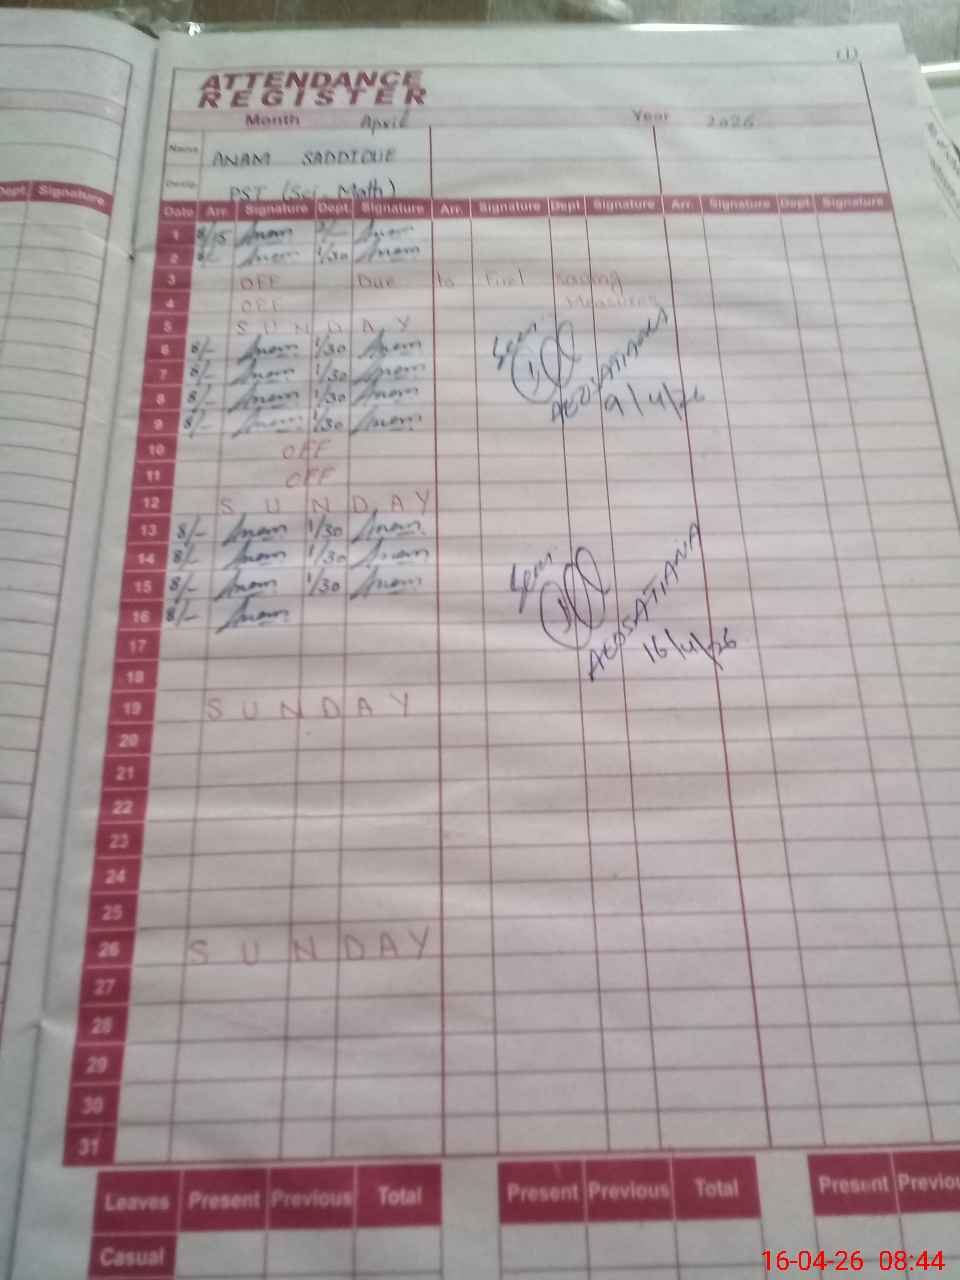 (1)
ATTENDANCE
REGISTER
Month April Year 2026
Name ANAM SADDIQUE
Desig. PST (Sci Math)
Dept. Signature
Date Arr. Signature Dept. Signature Arr. Signature Dept Signature Arr. Signature Dept. Signature
1 8/15 Anam Anam
2 8/- Anam 1/30 Anam
3 OFF Due to Fuel saving
4 OFF Measures
5 SUNDAY
6 8/- Anam 1/30 Anam
7 8/- Anam 1/30 Anam
8 8/- Anam 1/30 Anam
9 8/- Anam 1/30 Anam
Seen
9/4/26
10 OFF
11 OFF
12 SUNDAY
13 8/- Anam 1/30 Anam
14 8/- Anam 1/30 Anam
15 8/- Anam 1/30 Anam
16 8/- Anam
Seen
AEOSATIANA
16/4/26
17
18
19 SUNDAY
20
21
22
23
24
25
26 SUNDAY
27
28
29
30
31
Leaves Present Previous Total Present Previous Total Present
Casual
16-04-26 08:44